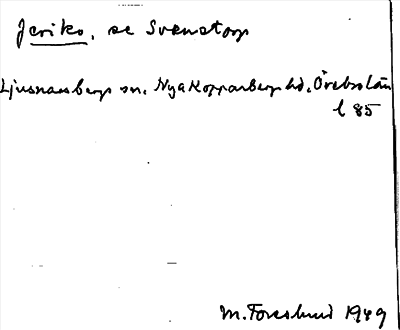 Jeriko, se Svenstorp
Ljusnarsbergs sn. Nya Kopparbergs hd. Örebro län
l 85
M. Forslund 1949